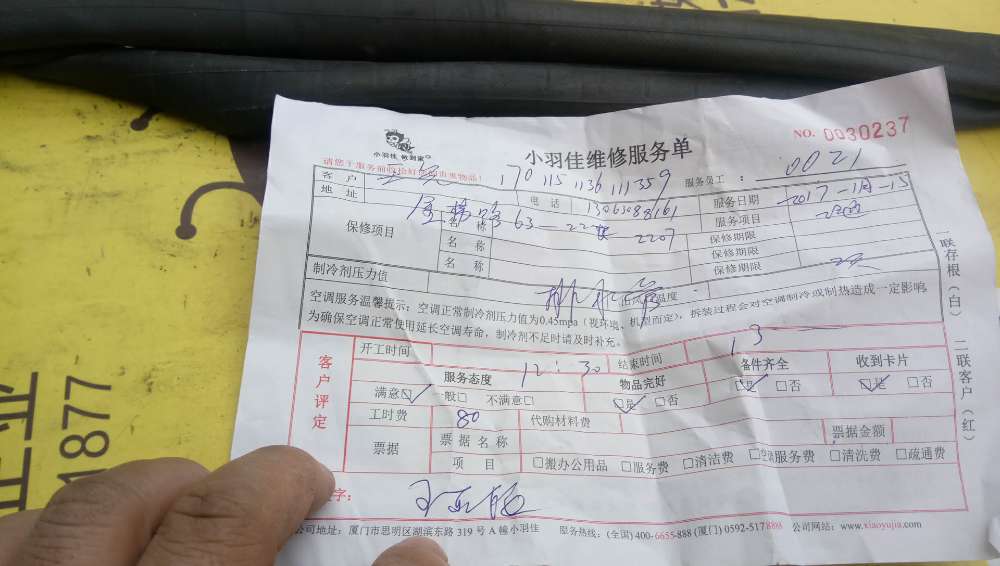 小羽佳 做到家
小羽佳维修服务单
NO. 0030237
请您于服务前收拾好您的贵重物品!
170 115 1136 111359
服务员工 : 0021
客 户
电 话
服务日期 2017-11-15
地 址 63-22 2207
服务项目
保修项目
名 称
保修期限
名 称
保修期限
名 称
保修期限
制冷剂压力值
排水管
温度
空调服务温馨提示: 空调正常制冷剂压力值为0.45mpa (视环境、机型而定), 拆装过程会对空调制冷或制热造成一定影响
为确保空调正常使用延长空调寿命, 制冷剂不足时请及时补充。
客户评定
开工时间 12:30
结束时间 13
服务态度
物品完好
备件齐全
收到卡片
满意☑ 一般□ 不满意□
☑是 □否
☑是 □否
☑是 □否
工时费 80
代购材料费
票据
票 据 名 称
票据金额
项 目
□搬办公用品 □服务费 □清洁费 服务费 □清洗费 □疏通费
字:
公司地址: 厦门市思明区湖滨东路 319 号 A 幢小羽佳
服务热线: (全国) 400-6655-888 (厦门) 0592-517888
公司网站: www.xiaoyujia.com
一联存根(白) 二联客户(红)
1877